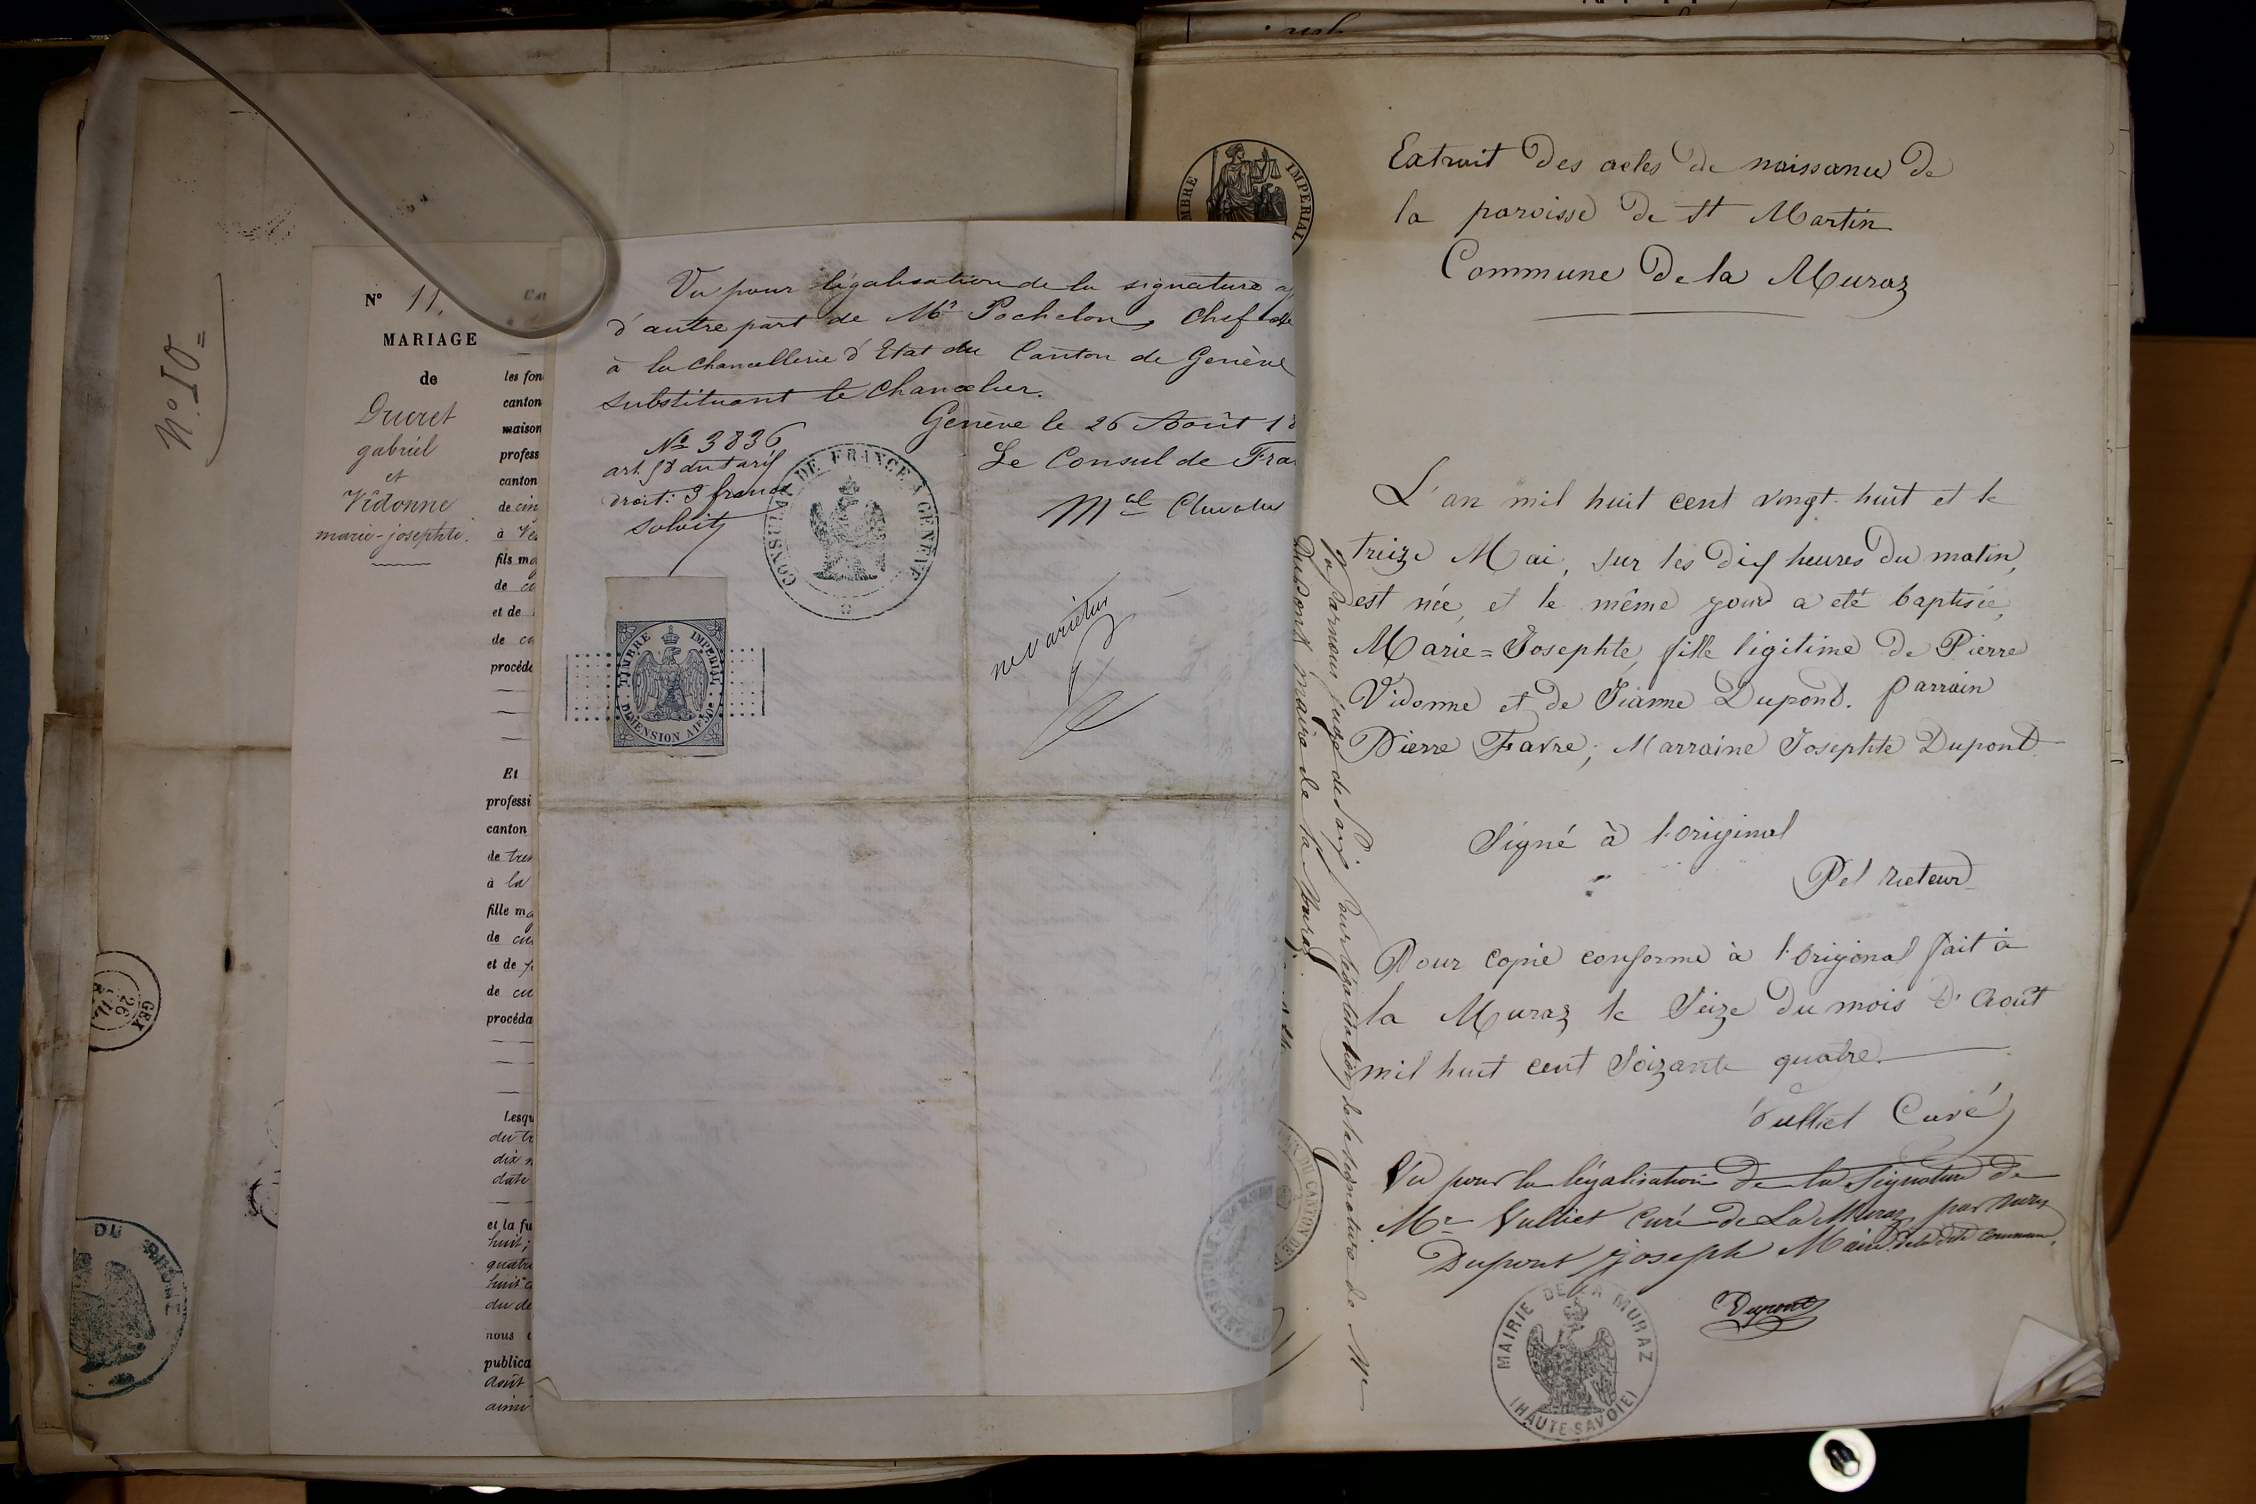 N° 10=
N° 11.
MARIAGE
de
Ducret
gabriel
et
Vidonne
marie-josephte.
les fon
canton
maison
profess
canton
de cin
à Ve
fils ma
de
et de
de
procéda
Et
professi
canton
de tren
à la
fille ma
de cu
et de
de cu
procéda
Lesqu
du tr
dix
date
et la fu
huit;
quatre
huit c
du de
nous
publica
Août
ainsi
GEX
26
DU
Vu pour légalisation de la signature
d'autre part de Mr Pochelon, Chef
à la Chancellerie d'Etat du Canton de Genève
substituant le Chancelier.
Genève le 26 Août 18
Le Consul de Fra
N° 3836
art. 58 du tarif
droit: 3 francs
Solvit
CONSULAT DE FRANCE A GENEVE
TIMBRE IMPERIAL
DIMENSION A 1F.50
ne varietur
DU CANTON DE
TIMBRE IMPERIAL
Extrait des actes de naissance de
la paroisse de St Martin
Commune de la Muraz
L'an mil huit cent vingt-huit et le
treize Mai, sur les dix heures du matin,
est née, et le même jour a eté baptisée,
Marie=Josephte, fille légitime de Pierre
Vidonne et de Jeanne Dupond. Parrain
Pierre Favre; Marraine Josephte Dupont
Signé à l'original
Pel recteur
Pour copie conforme à l'origonal fait à
la Muraz le Seize du mois d'Août
mil huit cent Soixante quatre.
Vulliet Curé
Vu pour la légalisation de la signature de
Mr Vulliet Curé de La Muraz, par nous
Dupont joseph Maire de la dite Commune.
Dupont
MAIRIE DE LA MURAZ
(HAUTE-SAVOIE)
Vu par nous juge de Paix pour légalisation de la signature de Mr
Dupont maire de la Muraz